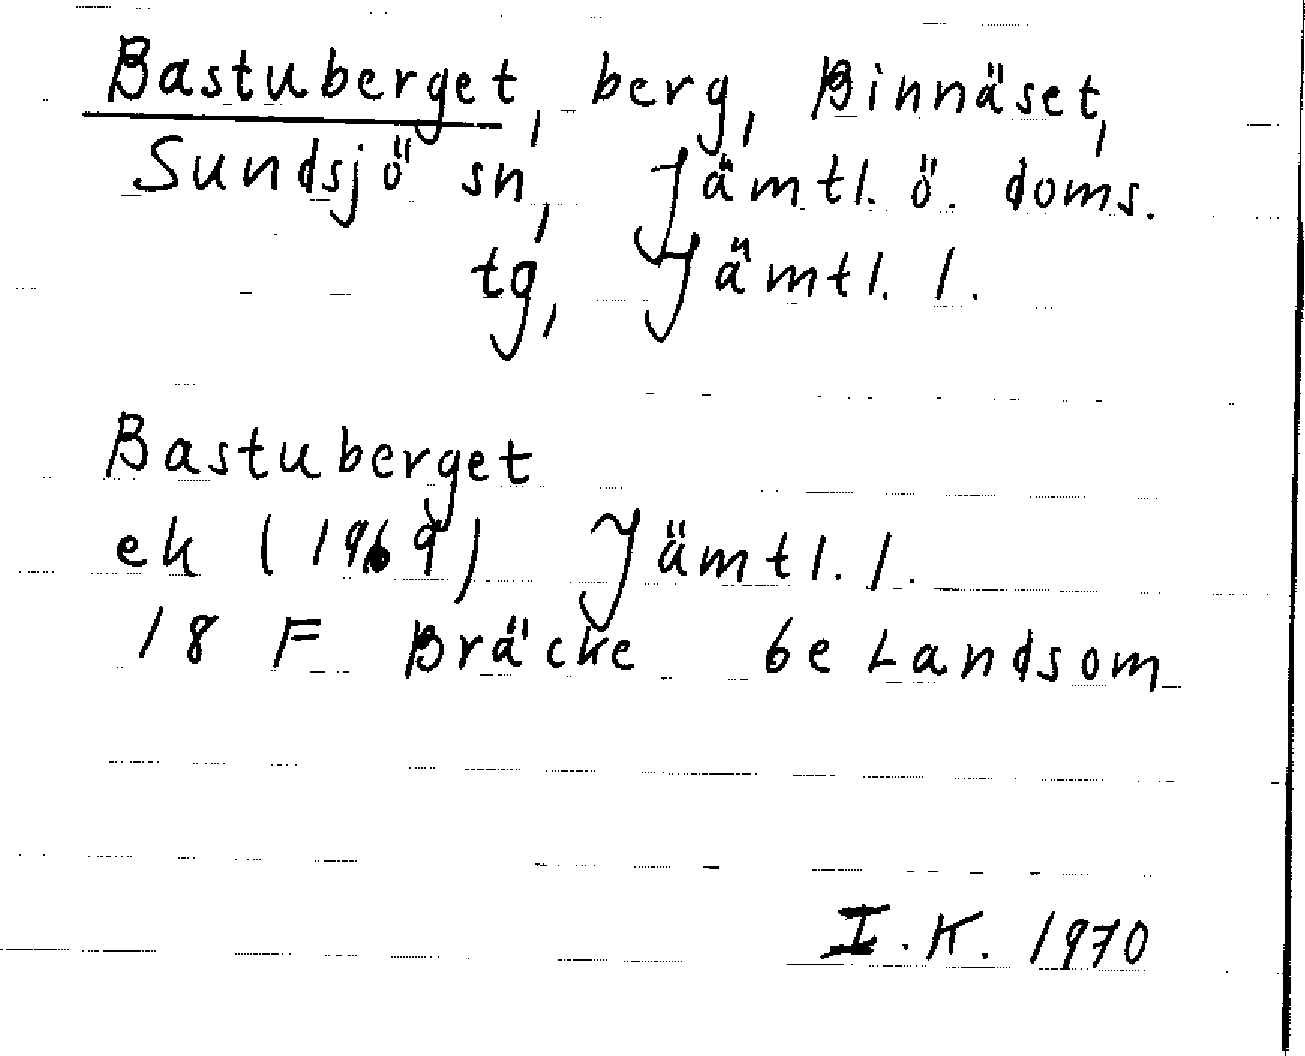 Bastuberget, berg, Binnäset,
Sundsjö sn, Jämtl. ö. doms.
tg, Jämtl. l.
Bastuberget
ek (1969) Jämtl. l.
18 F Bräcke 6e Landsom
I.K. 1970